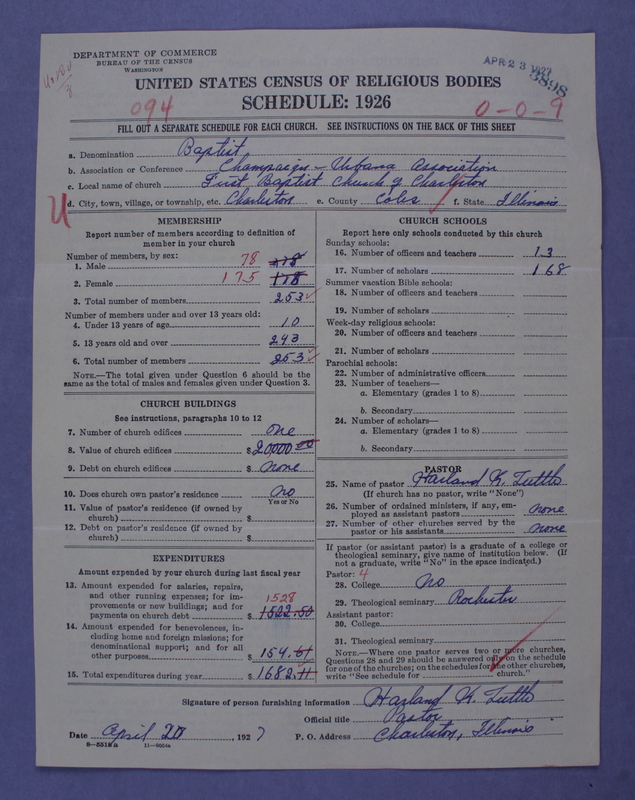 DEPARTMENT OF COMMERCE
BUREAU OF THE CENSUS
WASHINGTON
APR 23 1927
3898
UNITED STATES CENSUS OF RELIGIOUS BODIES
SCHEDULE: 1926
094
0-0-9
FILL OUT A SEPARATE SCHEDULE FOR EACH CHURCH. SEE INSTRUCTIONS ON THE BACK OF THIS SHEET
a. Denomination Baptist
b. Association or Conference Champaign - Urbana Association
c. Local name of church First Baptist Church of Charleston
d. City, town, village, or township, etc. Charleston e. County Coles f. State Illinois
MEMBERSHIP
Report number of members according to definition of
member in your church
Number of members, by sex:
1. Male 78
2. Female 175 178
3. Total number of members 253
Number of members under and over 13 years old:
4. Under 13 years of age 10
5. 13 years old and over 243
6. Total number of members 253
NOTE.—The total given under Question 6 should be the
same as the total of males and females given under Question 3.
CHURCH BUILDINGS
See instructions, paragraphs 10 to 12
7. Number of church edifices one
8. Value of church edifices $20000.00
9. Debt on church edifices $ none
10. Does church own pastor's residence no
Yes or No
11. Value of pastor's residence (if owned by
church) $
12. Debt on pastor's residence (if owned by
church) $
EXPENDITURES
Amount expended by your church during last fiscal year
13. Amount expended for salaries, repairs,
and other running expenses; for im-
provements or new buildings; and for
payments on church debt $ 1528 1522.50
14. Amount expended for benevolences, in-
cluding home and foreign missions; for
denominational support; and for all
other purposes 154.61
15. Total expenditures during year $1682.11
CHURCH SCHOOLS
Report here only schools conducted by this church
Sunday schools:
16. Number of officers and teachers 13
17. Number of scholars 168
Summer vacation Bible schools:
18. Number of officers and teachers
19. Number of scholars
Week-day religious schools:
20. Number of officers and teachers
21. Number of scholars
Parochial schools:
22. Number of administrative officers
23. Number of teachers—
a. Elementary (grades 1 to 8)
b. Secondary
24. Number of scholars—
a. Elementary (grades 1 to 8)
b. Secondary
PASTOR
25. Name of pastor Harland K. Tuttle
(If church has no pastor, write "None")
26. Number of ordained ministers, if any, em-
ployed as assistant pastors none
27. Number of other churches served by the
pastor or his assistants none
If pastor (or assistant pastor) is a graduate of a college or
theological seminary, give name of institution below. (If
not a graduate, write "No" in the space indicated.)
Pastor: 4
28. College No
29. Theological seminary Rochester
Assistant pastor:
30. College
31. Theological seminary
NOTE.—Where one pastor serves two or more churches,
Questions 28 and 29 should be answered only on the schedule
for one of the churches; on the schedules for the other churches,
write "See schedule for church."
Signature of person furnishing information Harland K. Tuttle
Official title Pastor
Date April 20, 1927 P. O. Address Charleston, Illinois